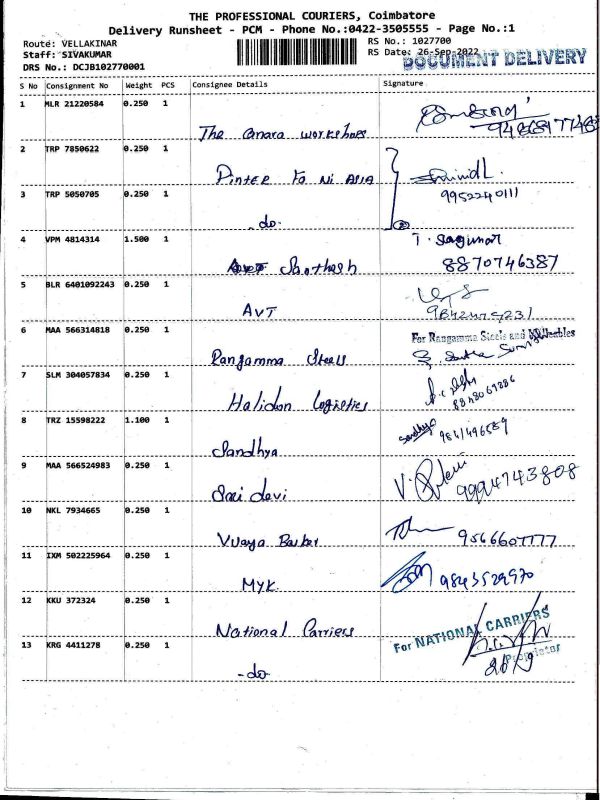 THE PROFESSIONAL COURIERS, Coimbatore
Delivery Runsheet - PCM - Phone No.:0422-3505555 - Page No.:1
Route: VELLAKINAR
RS No.: 1027700
Staff: SIVAKUMAR
RS Date: 26-Sep-2022
DOCUMENT DELIVERY
DRS No.: DCJB102770001
S No Consignment No Weight PCS Consignee Details Signature
1 MLR 21220584 0.250 1
The Canara workshops
2 TRP 7850622 0.250 1
Printer to Ni Asia
3 TRP 5050705 0.250 1
9952240111
-do-
4 VPM 4814314 1.500 1
Santhosh
8870746387
5 BLR 6401092243 0.250 1
AVT
6 MAA 566314818 0.250 1
For Rangamma Steels and
Rangamma Steels
7 SLM 304057834 0.250 1
Logistics
8 TRZ 15598222 1.100 1
Sandhya
9 MAA 566524983 0.250 1
Sri devi
9994743808
10 NKL 7934665 0.250 1
9566607777
11 IXM 502225964 0.250 1
MYK
9843529970
12 KKU 372324 0.250 1
National Carriers
For NATIONAL CARRIERS
13 KRG 4411278 0.250 1
Proprietor
-do-
26/9